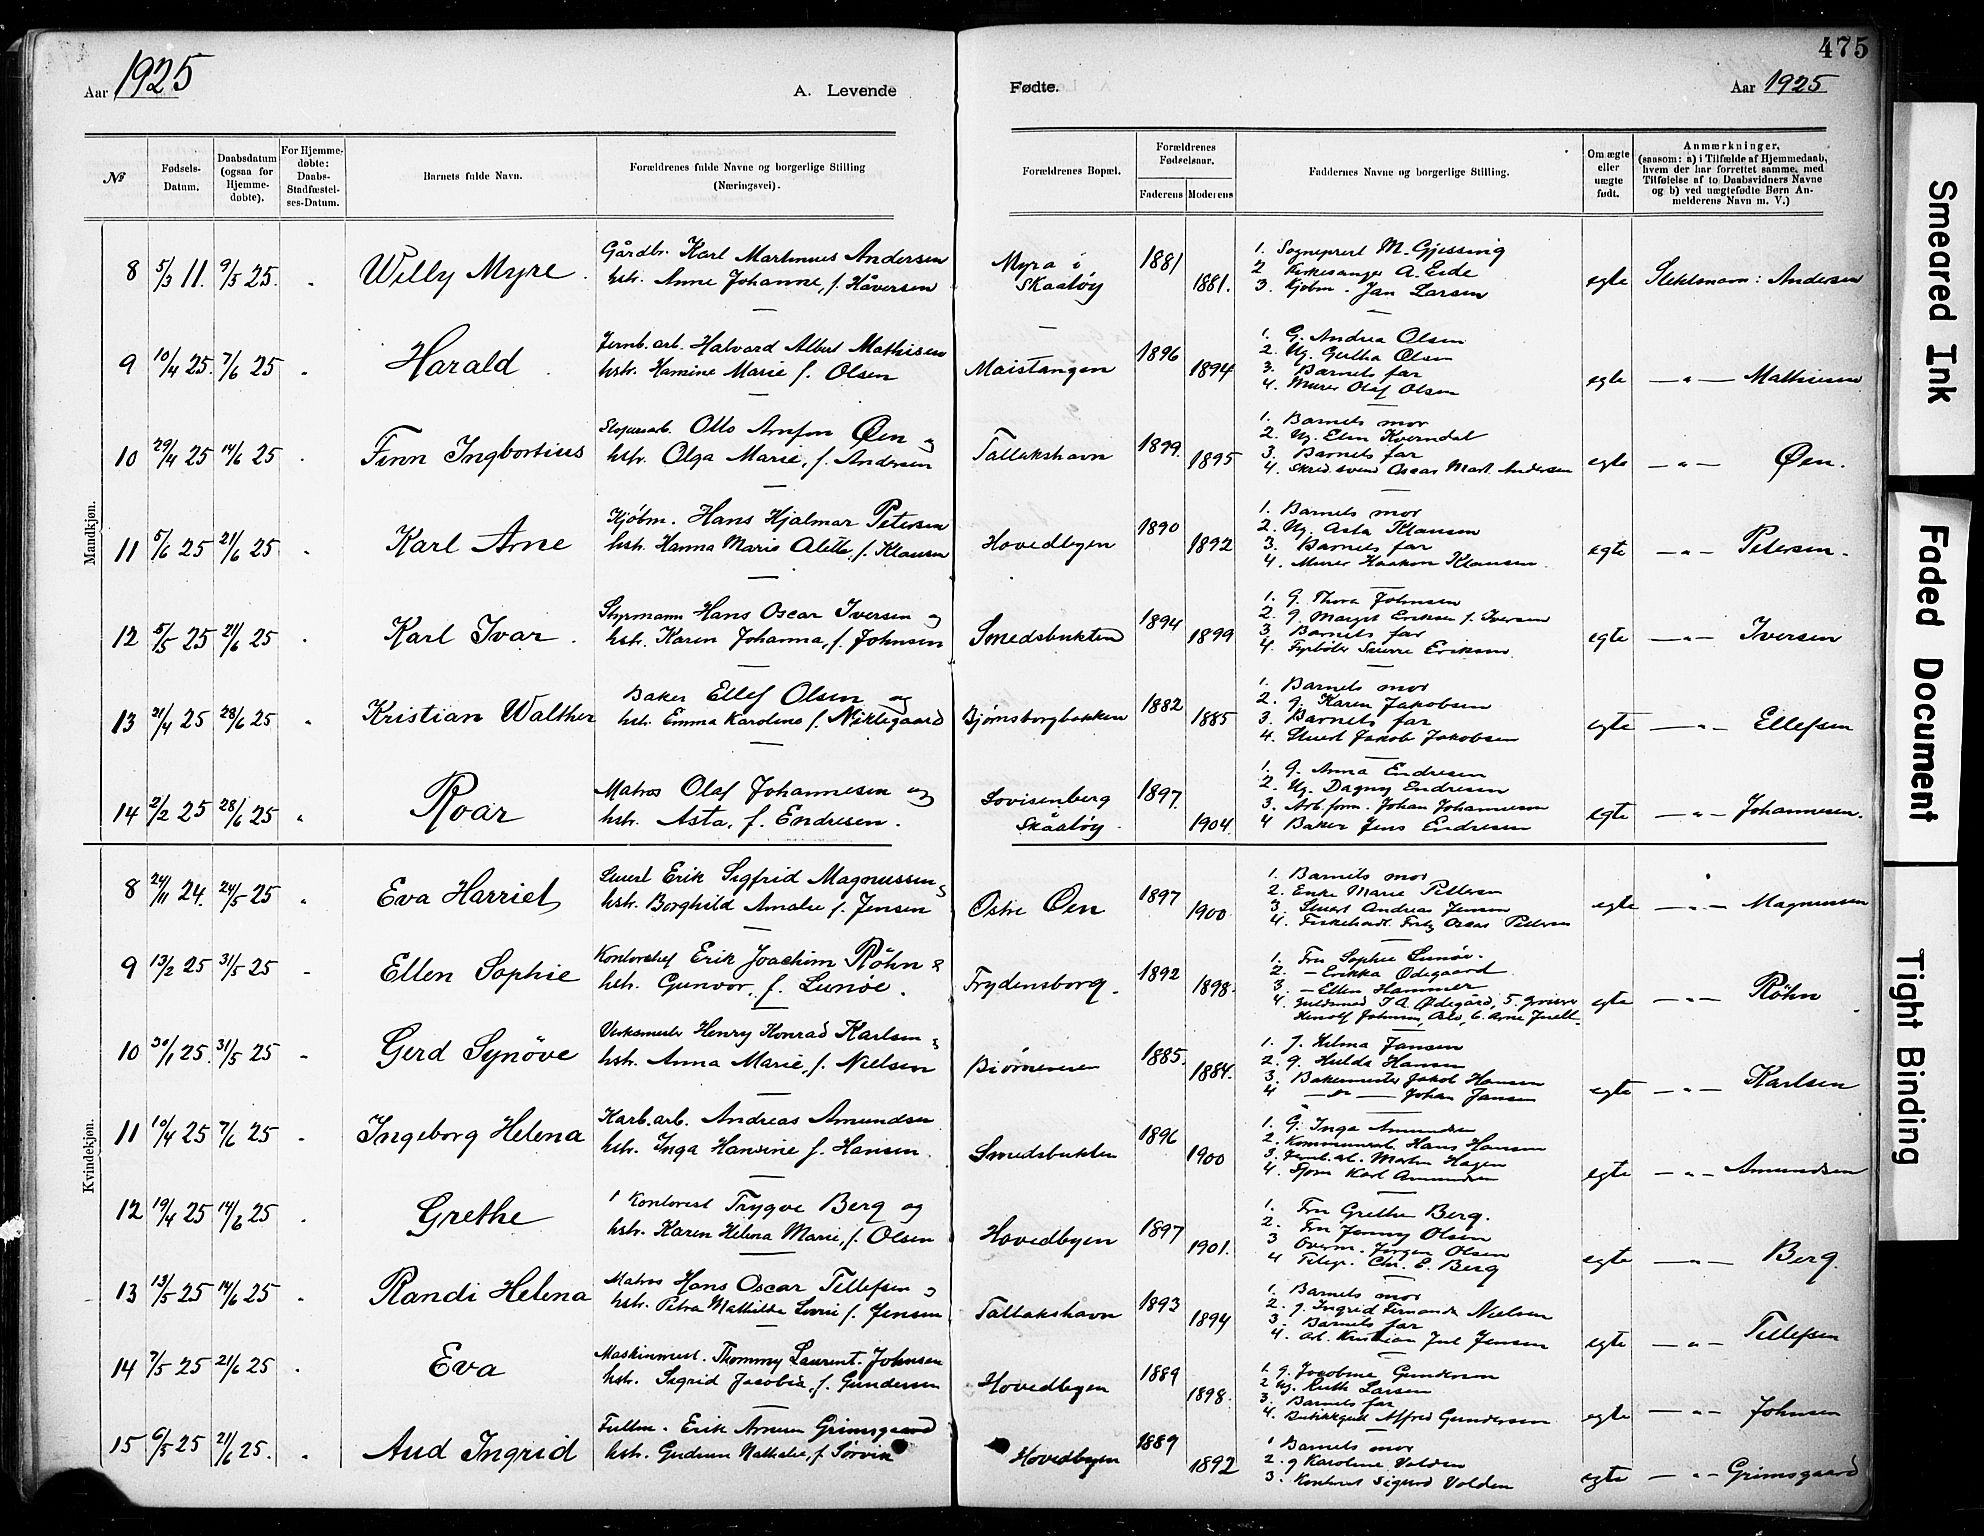 475
Aar 1925
A. Levende
Fødte.
Aar 1925
№ Fødsels-Datum. Daabsdatum (ogsaa for Hjemme-døbte). For Hjemme-døbte: Daabs-Stadfæstel-ses-Datum. Barnets fulde Navn. Forældrenes fulde Navne og borgerlige Stilling (Næringsvei).
Forældrenes Bopæl. Forældrenes Fødselsaar. Faderens Moderens Faddernes Navne og borgerlige Stilling. Om ægte eller uægte født. Anmærkninger, (saasom: a) i Tilfælde af Hjemmedaab, hvem der har forrettet samme, med Tilføielse af to Daabsvidners Navne og b) ved uægtefødte Børn An-melderens Navn m. V.)
Mandkjøn.
8 5/3 11. 9/5 25. Willy Myre. Gårdbr. Karl Martinues Andersen
hstr. Anne Johanne, f. Håversen
Myra i Skaatøy 1881 1881.
1. Sogneprest M. Gjessing
2 Kirkesanger A. Eide
3. Kjøbm. Jan Larsen
egte Slektsnavn: Andersen
9 10/4 25. 7/6 25 Harald Jernb. arb. Halvard Albert Mathisen
hstr. Hamine Marie f. Olsen
Maistangen 1896 1894
1. G. Andrea Olsen
2. Ug. Gertha Olsen
3. Barnets far
4. Murer Olaf Olsen
egte — " — Mathisen
10 29/4 25 14/6 25 Finn Ingbortius Otto Arnfon Øen og
hstr. Olga Marie, f. Andersen
Tallakshavn 1899. 1895
1. Barnets mor
2. Ug. Elen Kverndal
3. Barnets far
4. Skred.svend Oscar Mart. Andersen
egte — " — Øen.
11 5/6 25 21/6 25 Karl Arne Kjøbm. Hans Hjalmar Petersen
hstr. Hanna Marie Alette, f. Klausen
Hovedbyen 1890 1892
1. Barnets mor
2. Ug. Asta Klausen
3. Barnets far
4. Murer Haakon Klausen.
egte — " — Petersen.
12 5/5 25 21/6 25 Karl Ivar. Styrmann Hans Oscar Iversen og
hstr. Karen Johanna, f. Johnsen
Smedsbukten 1894 1899
1. G. Thora Johnsen
2. g. Margit Eriksen f. Iversen
3. Barnets far
4. Fyrbøter Sverre Eriksen.
egte — " — Iversen
13 21/4 25 28/6 25 Kristian Walther Baker Ellef Olsen og
hstr. Emma Karoline f. Niklegaard
Bjørnsborgbakken 1882 1885
1. Barnets mor
2. g. Karen Jakobsen
3. Barnets far
4. Stuert Jakob Jakobsen
egte — " — Ellefsen
14 2/2 25 28/6 25 Roar Matros Olaf Johannesen og
hstr. Asta, f. Endresen.
Lovisenberg Skåatøy. 1897. 1904.
1. g. Anna Endresen
2. Ug. Dagny Endresen
3. Arb. form. Johan Johannesen
4 Baker Jens Endresen
egte — " — Johannesen.
Kvindekjøn.
8 24/11 24. 24/5 25 Eva Harriet Stuert Erik Sigfrid Magnussen &
hstr. Borghild Amalie f. Jensen
Østre Øen 1897 1900
1. Barnets mor
2. Enke Marie Pettersen
3. Stuert Andreas Jensen
4. Fiskehandl. Fritz Oscar Pettersen
egte — " — Magnussen
9 13/2 25 31/5 25 Ellen Sophie Kontorchef Erik Joachim Röhn &
hstr. Gunvor, f. Lunøe.
Frydensborg. 1892 1898.
1. Fru Sophie Lunøe.
2. — Erikka Ødegaard
3. — Ellen Hammer
4. Guldsmed T. A. Ødegård, 5.
egte — " — Röhn
10 30/1 25. 31/5 25 Gerd Synöve Verksmester Henry Konrad Karlsen &
hstr. Anna Marie, f. Nielsen
Biørneveien 1885. 1884.
1. J. Hilma Jansen
2. g. Hulda Hansen
3. Bakermester Jakob Hansen
4 — " — Johan Jansen
egte — " — Karlsen
11 10/4 25 7/6 25 Ingeborg Helena Karb. arb. Andreas Amundsen
hstr. Inga Hansine f. Hansen.
Smedsbukten 1896 1900
1. G. Inga Amundsen
2. Kommunearb. Hans Hansen
3. Jernb. arb. Martin Hagen
4. Sjøm. Karl Amundsen
egte — " — Amundsen
12 19/4 25 14/6 25 Grethe Kontorist Trygve Berg og
hstr. Karen Helena Marie, f. Olsen
Hovedbyen 1897 1901.
1. Fru Grethe Berg.
2. Fru Jenny Olsen
3 Overm. Jørgen Olsen
4 Telegr. Chr. E. Berg
egte — " — Berg.
13 13/5 25 14/6 25 Randi Helena Matros Hans Oscar Tellefsen &
hstr. Petra Mathilde Lovise f. Jensen
Tallakshavn 1893 1894
1. Barnets mor
2. g. Ingrid Fernanda Nielsen
3. Barnets far
4. Arb. Kristian Juel Jensen
egte — " — Tellefsen
14 7/5 25 21/6 25 Eva Maskinmest. Thommy Laurent. Johnsen
hstr. Sigrid Jacobia, f. Gundersen
Hovedbyen 1889 1898.
1. g. Jacobine Gundersen
2 Ug. Ruth Larsen
3. Barnets far
4. Butikkgut Alfred Gundersen
egte — " — Johnsen
15 6/5 25 21/6 25. Aud Ingrid Fullm. Erik Arnesen Grimsgaard
hstr. Gudrun Nathalie, f. Sørvik
Hovedbyen 1889 1892
1 Barnets mor
2. g Karoline Volden
3. Kontorist Sigurd Volden
egte — " — Grimsgaard
Smeared Ink
Faded Document
Tight Binding